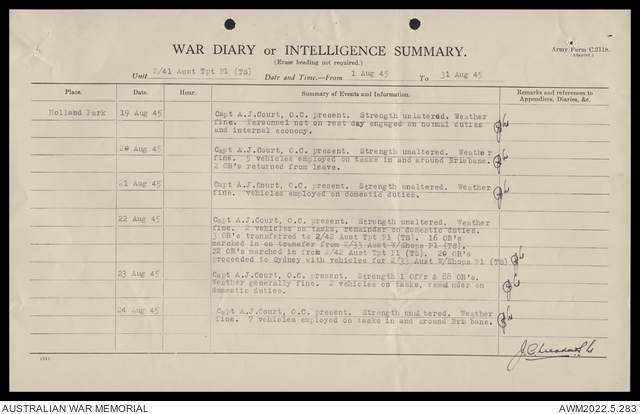 WAR DIARY or INTELLIGENCE SUMMARY.
(Erase heading not required.)
Army Form C.2118.
(Adapted.)
Unit 2/41 Aust Tpt Pl (TS) Date and Time.—From 1 Aug 45 To 31 Aug 45
Place. Date. Hour. Summary of Events and Information. Remarks and references to Appendices, Diaries, &c.
Holland Park 19 Aug 45 Capt A.J.Court, O.C. present. Strength unlatered. Weather
fine. Personnel not on rest day engaged on normal duties
and internal economy.
20 Aug 45 Capt A.J.Court, O.C. present. Strength unaltered. Weather
fine. 5 vehicles employed on tasks in and around Brisbane.
2 OR's returned from leave.
21 Aug 45 Capt A.J.Court, O.C. present. Strength unaltered. Weather
fine. vehicles employed on domestic duties.
22 Aug 45 Capt A.J.Court, O.C. present. Strength unaltered. Weather
fine. 2 vehicles on tasks, remainder on domestic duties.
3 OR's transferred to 2/42 Aust Tpt Pl (TS). 16 OR's
marched in on transfer from 2/33 Aust W/Shops Pl (TS).
22 OR's marched in from 2/42 Aust Tpt Pl (TS). 20 OR's
proceeded to Sydney with vehicles for 2/33 Aust W/Shops Pl (TS)
23 Aug 45 Capt A.J.Court, O.C. present. Strength 1 Offr & 88 OR's.
Weather generally fine. 2 vehicles on tasks, remainder on
domestic duties.
24 Aug 45 Capt A.J.Court, O.C. present. Strength unaltered. Weather
fine. 7 vehicles employed on tasks in and around Brisbane.
AUSTRALIAN WAR MEMORIAL AWM2022.5.283